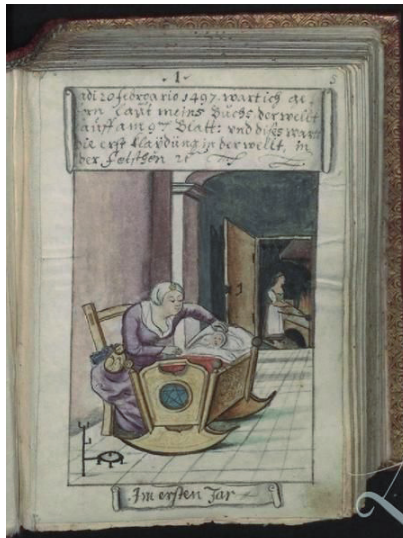 . 1 .
5
adi 20 febroario 1497. wart ich ge,
laut meins Buchs, der wellt
auff am 97 Blatt: und dises wart
die erst Klaidung in der wellt, in
der
Im ersten Jar